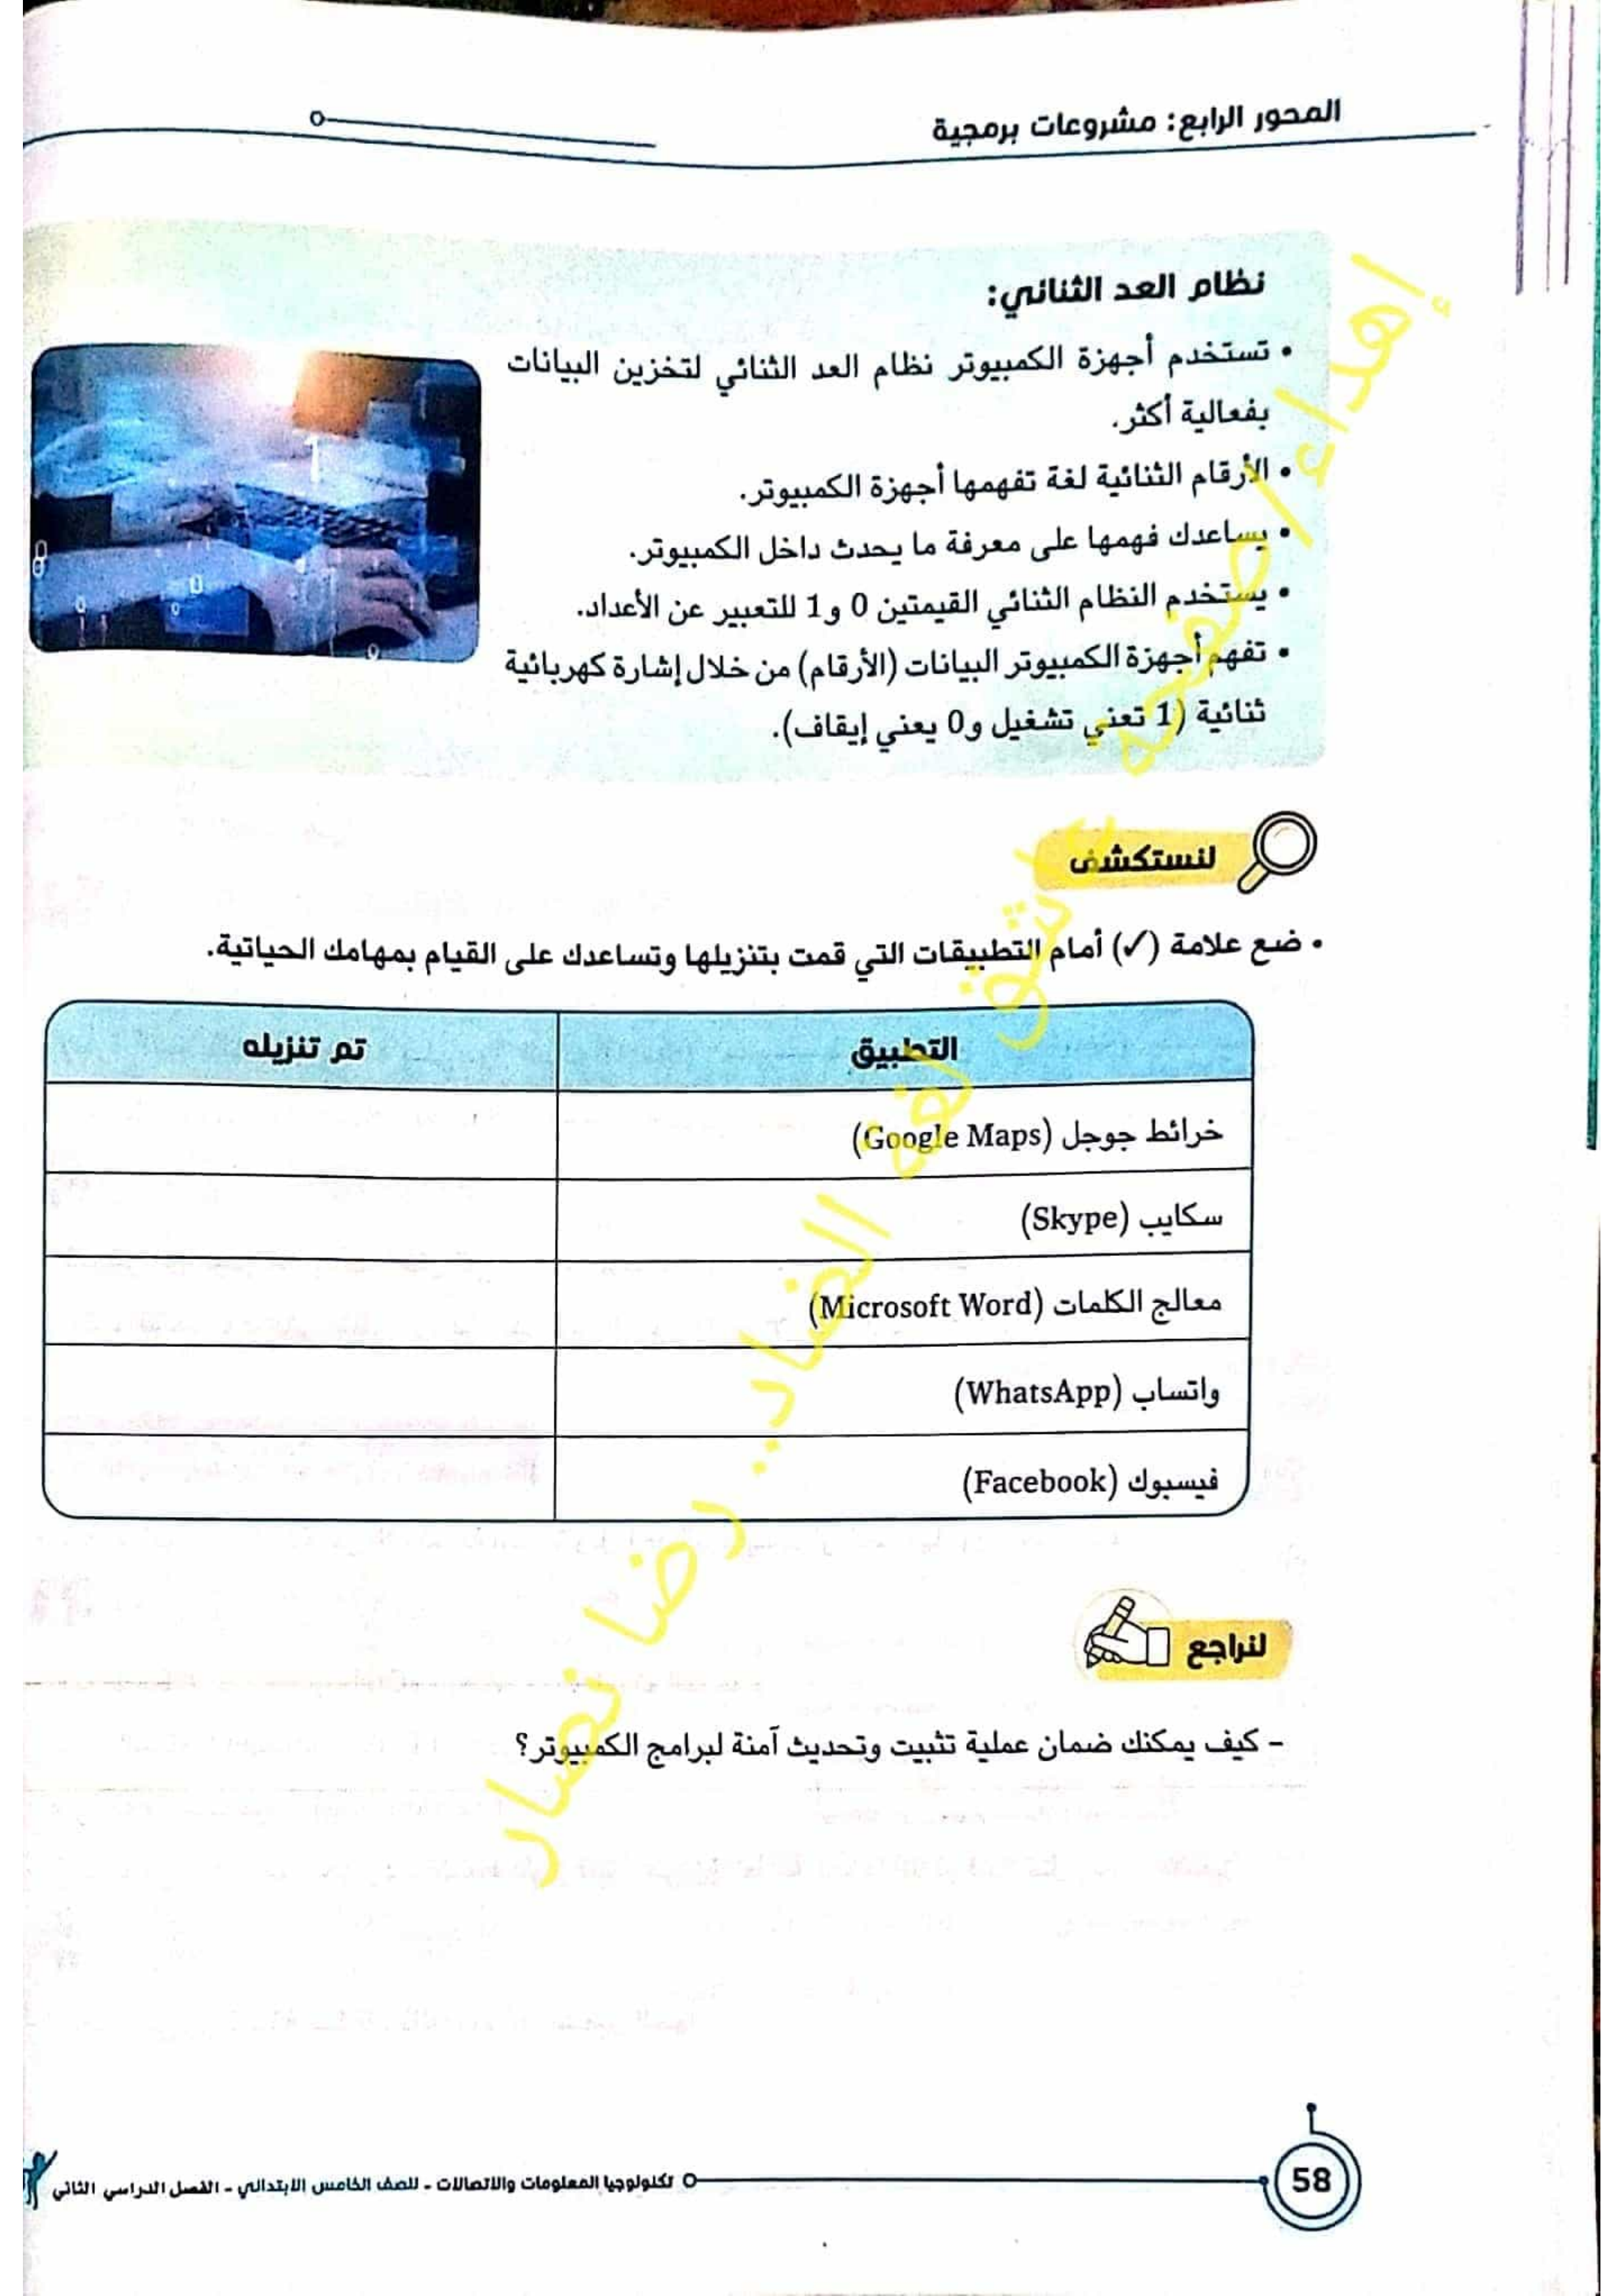 المحور الرابع: مشروعات برمجية
نظام العد الثنائي:
• تستخدم أجهزة الكمبيوتر نظام العد الثنائي لتخزين البيانات
بفعالية أكثر.
• الأرقام الثنائية لغة تفهمها أجهزة الكمبيوتر.
• يساعدك فهمها على معرفة ما يحدث داخل الكمبيوتر.
• يستخدم النظام الثنائي القيمتين 0 و1 للتعبير عن الأعداد.
• تفهم أجهزة الكمبيوتر البيانات (الأرقام) من خلال إشارة كهربائية
ثنائية (1 تعني تشغيل و0 يعني إيقاف).
لنستكشف
• ضع علامة (✓) أمام التطبيقات التي قمت بتنزيلها وتساعدك على القيام بمهامك الحياتية.
التطبيق تم تنزيله
خرائط جوجل (Google Maps)
سكايب (Skype)
معالج الكلمات (Microsoft Word)
واتساب (WhatsApp)
فيسبوك (Facebook)
لنراجع
- كيف يمكنك ضمان عملية تثبيت وتحديث آمنة لبرامج الكمبيوتر؟
58 تكنولوجيا المعلومات والاتصالات - للصف الخامس الابتدائي - الفصل الدراسي الثاني
إهداء/ صفحة عاشق لغة الضاد.. رضا نصار